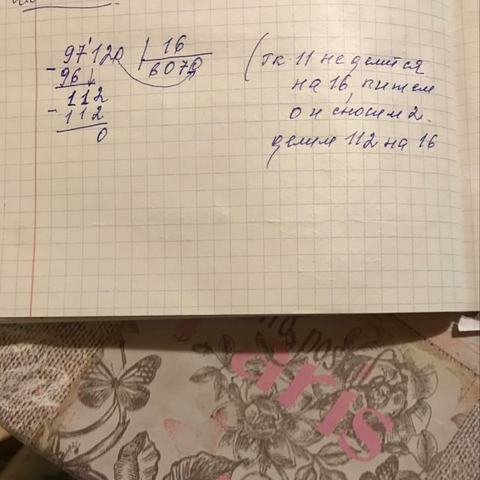 97'120 | 16
- 96 6070
112
- 112
0
(т.к 11 не делится
на 16, пишем
0 и сносим 2.
делим 112 на 16
aris